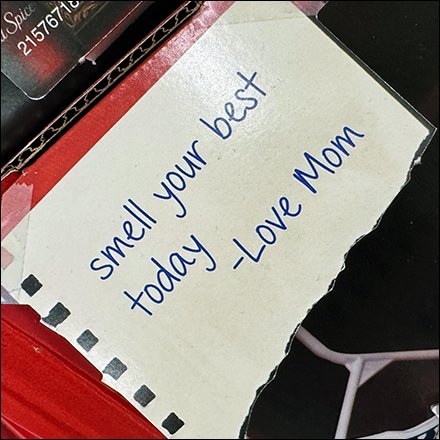 Spice
smell your best
today
-Love Mom